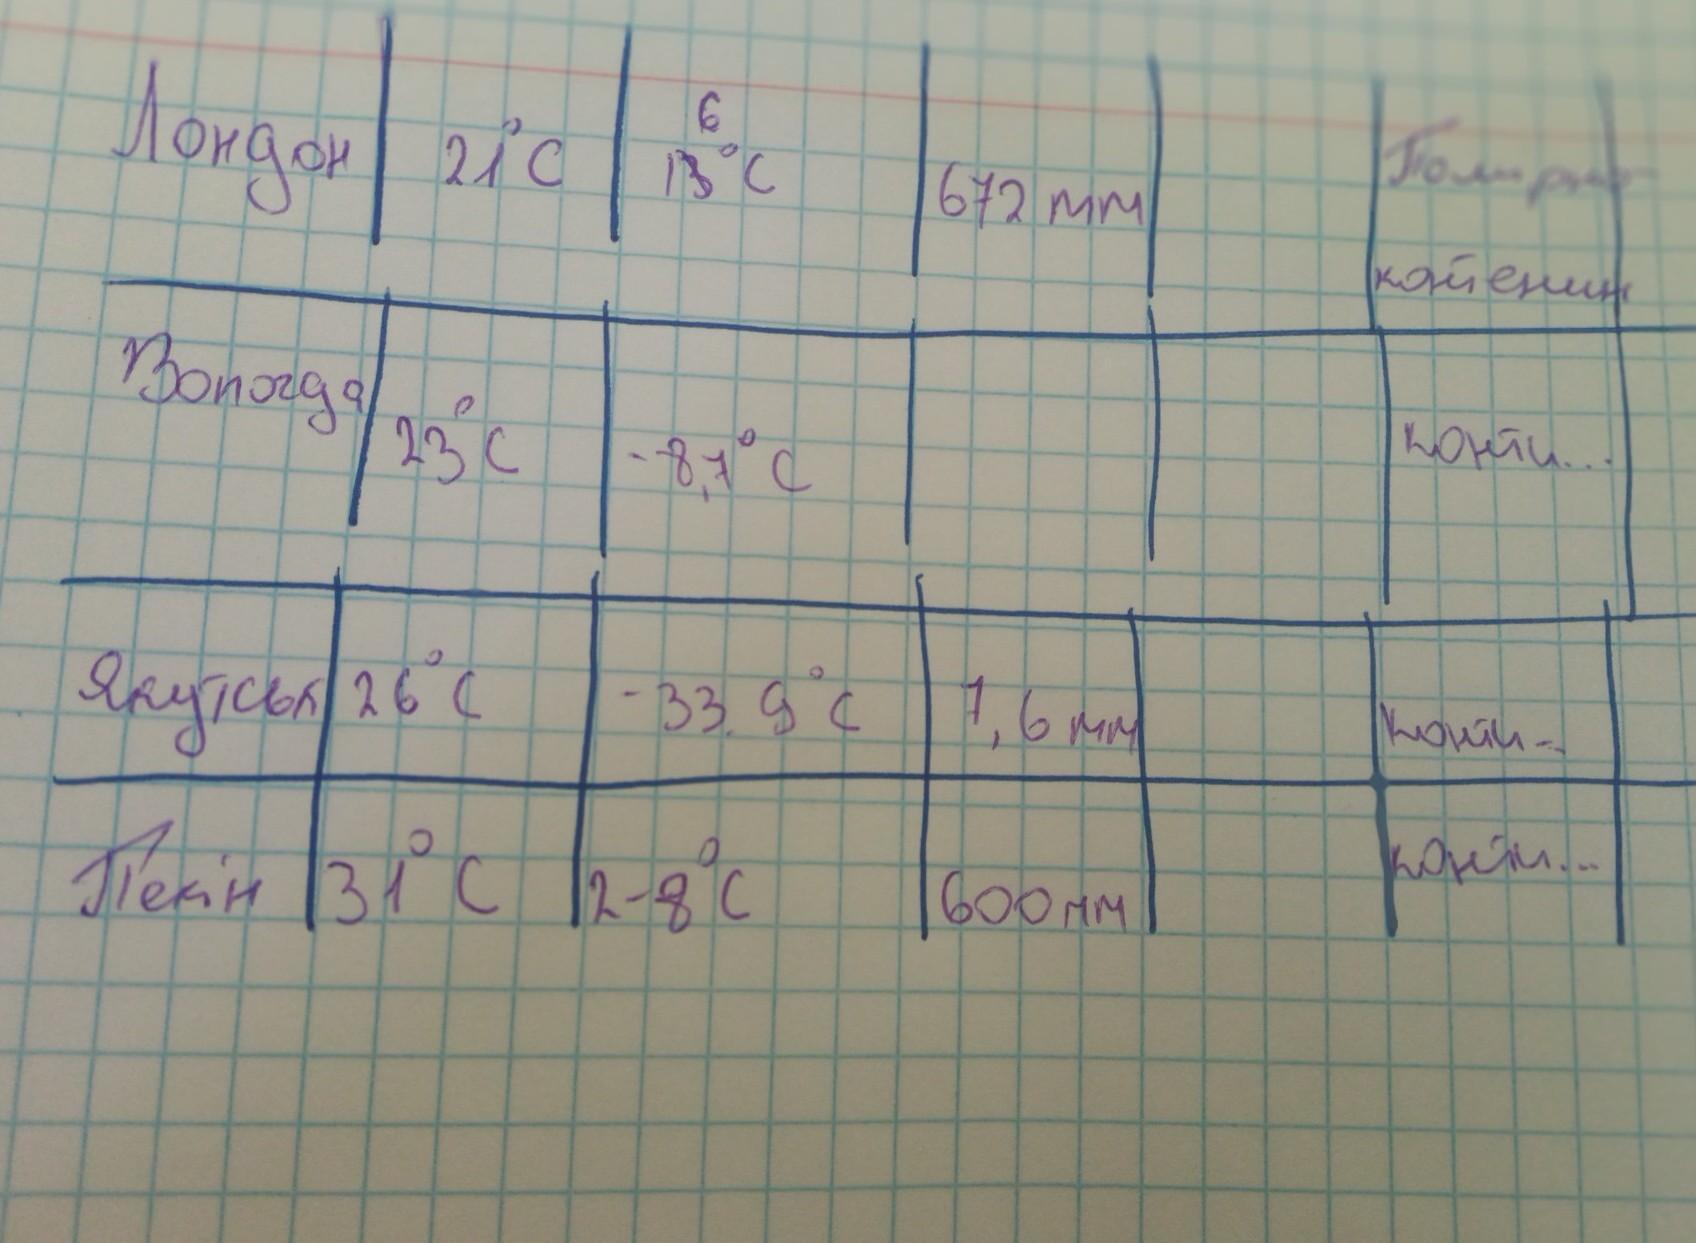 Лондон 21°C 6 13°C 672 mm
контенин
Вологда 23°C -8,7°C конти...
Якутськ 26°C -33.9°C 7,6 мм конти...
Пекін 31°C 2-8°C 600мм конти...